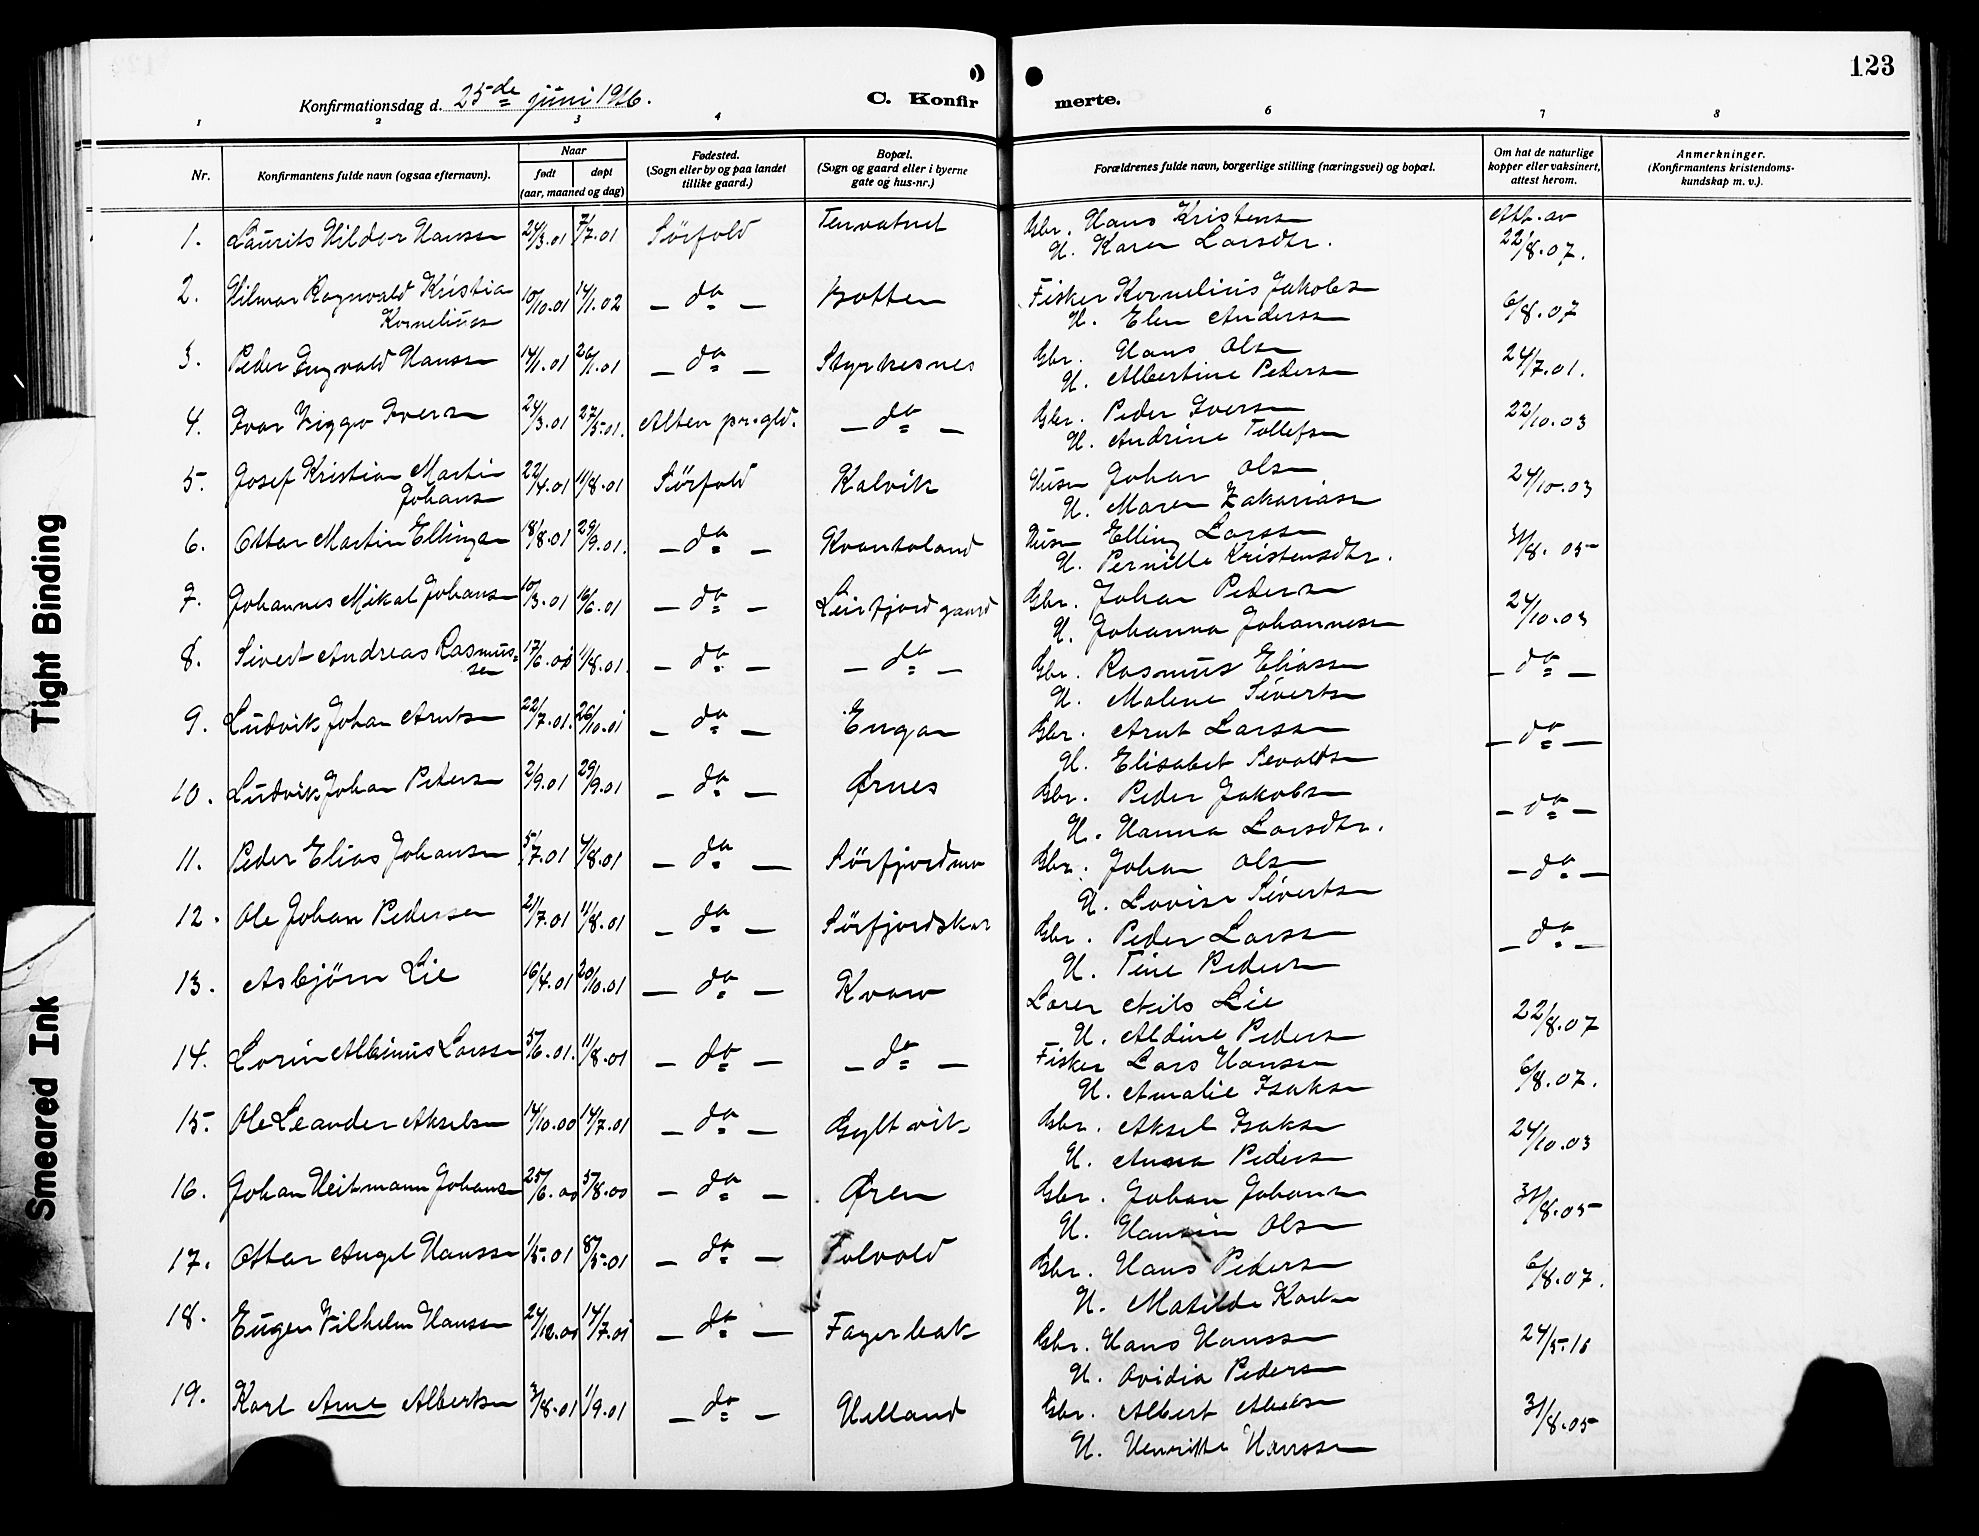 123
Konfirmationsdag d. 25de juni 1916.
C. Konfir merte.
1 2 3 4 6 7 8
Nr.
Konfirmantens fulde navn (ogsaa efternavn).
Naar
født døpt
(aar, maaned og dag)
Fødested.
(Sogn eller by og paa landet
tillike gaard.)
Bopæl.
(Sogn og gaard eller i byerne
gate og hus-nr.)
Forældrenes fulde navn, borgerlige stilling (næringsvei) og bopæl.
Om hat de naturlige
kopper eller vaksinert,
attest herom.
Anmerkninger.
(Konfirmantens kristendoms-
kundskap m. v.).
1. Laurits Hildor Hanssen 24/3.01 7/7.01 Sörfold Tenvatnet Gbr. Hans Kristens Att. av
H. Karen Larsdtr. 22/8.07.
2. Hilmar Ragnvald Kristian 10/10.01 14/1.02 — do — Botten Fisker Kornelius Jakobsen 6/8.07
Kornelius H. Elen Anderssen
3. Peder Ingvald Hanssen 14/1.01 26/1.01 — do — Styrkesnes Gbr. Hans Olsen 24/7.01.
H. Albertine Pedersen
4. Ivar Viggo Iversen 24/3.01 27/5.01. Alten pr.gld. — do — Gbr. Peder Iversen 22/10.03
H. Andrine Tollefsen
5. Josef Kristian Martin 22/4.01 11/8.01 Sörfold Kalvik Husm Johan Olsen 24/10.03
Johansen H. Maren Zakariassen
6. Ottar Martin Ellingsen 18/8.01 29/9.01. — do — Kvantoland Husm Elling Larssen 31/8.05
H. Pernille Kristensdtr.
7. Johannes Mikal Johansen 10/3.01 16/6.01 — do — Leirfjordgaard Gbr. Johan Pedersen 24/10.03
H. Johanna Johannesen
8. Sivert Andreas Rasmus- 17/6.00 11/8.01. — do — — do — Gbr. Rasmus Eliassen — do —
sen H. Malene Sivertsen
9. Ludvik Johan Arntsen 22/7.01. 26/10.01 — do — Engan Gbr. Arnt Larssen — do —
H. Elisabet Sevaldsen
10. Ludvik Johan Pedersen 2/9.01 29/9.01 — do — Ørnes Gbr. Peder Jakobsen — do —
H. Hanna Larsdtr.
11. Peder Elias Johansen 5/7.01 4/8.01 — do — Sörfjordmo Gbr. Johan Olsen — do —
H. Lovise Sivertsen
12. Ole Johan Pedersen 21/7.01 11/8.01 — do — Sörfjordskar Gbr. Peder Larssen — do —
H. Tine Pedersen
13. Asbjörn Lie 16/4.01 20/10.01 — do — Kvarv Lærer Nils Lie 22/8.07
H. Aldine Pedersen
14. Lorin Albinus Larssen 5/6.01. 11/8.01 — do — — do — Fisker Lars Hansen 6/8.07.
H. Amalie Isaksen
15. Ole Leander Akselsen 14/10.00 14/7.01 — do — Gyltvik Gbr. Aksel Isaksen 24/10.03
H. Anna Pedersen
16. Johan Heitmann Johansen 25/6.00 5/8.00 — do — Øren Gbr. Johan Johansen 31/8.05
H. Hansin Olsen
17. Ottar Angel Hanssen 1/5.01 8/5.01 — do — Tolvold Gbr. Hans Pedersen 6/8.07.
H. Matilde Karlsen
18. Eugen Vilhelm Hanssen 24/12.00 14/7.01 — do — Fagerbak Gbr. Hans Hanssen 24/5.16
H. Ovidia Pedersen
19. Karl Arne Albertsen 3/8.01 1/9.01 — do — Helland Gbr. Albert Albertsen 31/8.05
H. Henritte Hanssen
Tight Binding
Smeared Ink